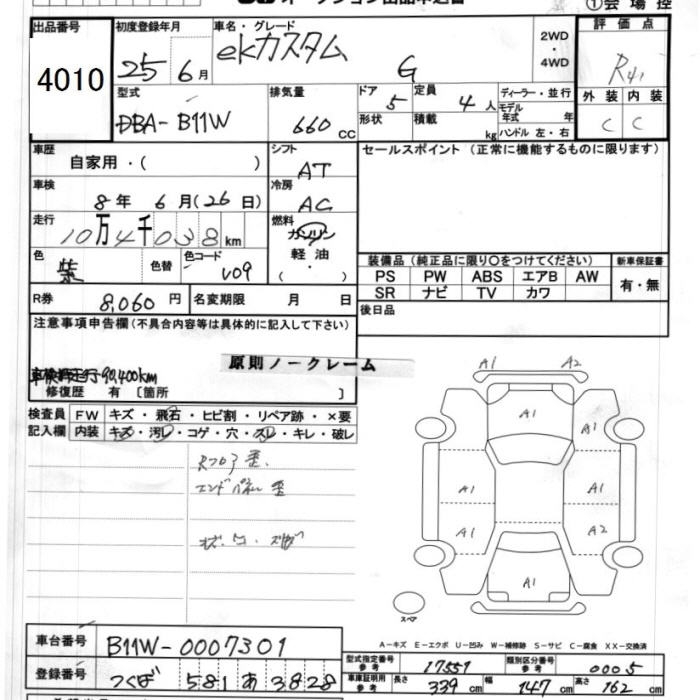 ①会場控
出品番号
4010
初度登録年月
25 6月
車名・グレード
ekカスタム G
2WD
・
4WD
評価点
R41
外装 内装
C C
型式
DBA-B11W
排気量
660 CC
ドア 5
形状
定員 4人
積載 kg
ディーラー・並行
モデル
年式 年
ハンドル 左・右
車歴
自家用・( )
シフト
AT
セールスポイント (正常に機能するものに限ります)
車検
8年 6月(26日)
冷房
AC
走行
10万4千038km
燃料
ガソリン
軽油
( ・ )
色
紫
色替
色コード
V09
装備品 (純正品に限り○をつけてください)
新車保証書
PS PW ABS エアB AW
有・無
SR ナビ TV カワ
R券 8,060円
名変期限 月 日
後日品
注意事項申告欄(不具合内容等は具体的に記入して下さい)
原則ノークレーム
90,400km
修復歴 有 〔箇所 〕
検査員
記入欄
FW キズ・飛石・ヒビ割・リペア跡・×要
内装 キズ・汚レ・コゲ・穴・スレ・キレ・破レ
Rフロア歪
エンドパネル歪
A1 A2
A1
A1
A1 A1
A1 A2
A1
スペア
A-キズ E-エクボ U-凹み W-補修跡 S-サビ C-腐食 XX-交換済
車台番号
B11W-0007301
登録番号
つくば 581 あ 3828
型式指定番号
参考
17551
類別区分番号
参考
0005
車庫証明用
参考
長さ 339cm 幅 147cm 高さ 162cm